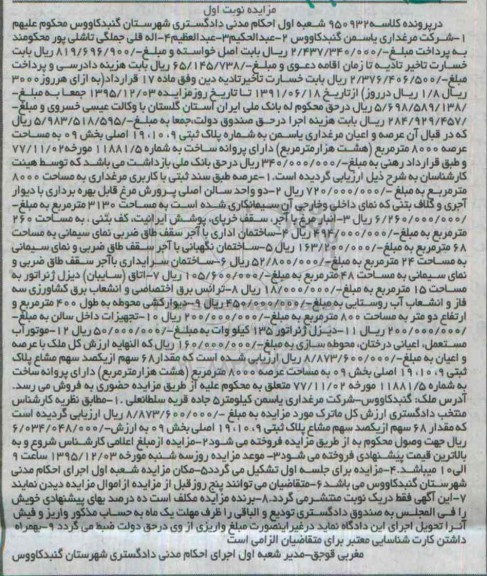 مزایده نوبت اول
درپرونده کلاسه ۹۵۰۹۳۲ شعبه اول احکام مدنی دادگستری شهرستان گنبدکاووس محکوم علیهم
۱-شرکت مرغداری یاسمن گنبدکاووس ۲-عبدالحکیم ۳-عبدالعظیم ۴-اله قلی جملگی تاشلی پور محکومند
به پرداخت مبلغ -/۲/۴۳۷/۳۴۰/۰۰۰ ریال بابت اصل خواسته و مبلغ-/۸۱۹/۶۹۶/۹۰۰ ریال بابت
خسارت تاخیر تادیه تا زمان اقامه دعوی و مبلغ-/۶۵/۱۴۵/۷۳۸ ریال بابت هزینه دادرسی و پرداخت
مبلغ-/۲/۳۷۶/۴۰۶/۵۰۰ ریال بابت خسارت تاخیرتادیه دین وفق ماده ۱۷ قرارداد(به ازای هرروز ۳۰۰۰
ریال ۱/۸ ریال درروز) ازتاریخ ۱۳۹۱/۰۶/۱۸ تا تاریخ روزمزایده ۱۳۹۵/۱۲/۰۳ جمعا به مبلغ-
/۵/۶۹۸/۵۸۹/۱۳۸ ریال درحق محکوم له بانک ملی ایران استان گلستان با وکالت عیسی خسروی و مبلغ-
/۲۸۴/۹۲۹/۴۵۷ ریال بابت هزینه اجرا درحق صندوق دولت،جمعا به مبلغ-/۵/۹۸۳/۵۱۸/۵۹۵ ریال
که در قبال آن عرصه و اعیان مرغداری یاسمن به شماره پلاک ثبتی ۱۹،۱۰،۹ اصلی بخش ۰۹ به مساحت
عرصه ۸۰۰۰ مترمربع (هشت هزارمترمربع) دارای پروانه ساخت به شماره ۱۱۸۸۱/۵ مورخه ۷۷/۱۱/۰۲
و طبق قرارداد رهنی به مبلغ-/۳۴۰/۰۰۰/۰۰۰ ریال درحق بانک ملی بازداشت می باشد که توسط هیئت
کارشناسان به شرح ذیل ارزیابی گردیده است. ۱-عرصه طبق سند ثبتی با کاربری مرغداری به مساحت ۸۰۰۰
مترمربع به مبلغ -/۷۲۰/۰۰۰/۰۰۰ ریال ۲-دو واحد سالن اصلی پرورش مرغ قابل بهره برداری با دیوار
آجری و کلاف بتنی که نمای داخلی وخارجی آن سیمانکاری شده است به مساحت ۳۱۳۰ مترمربع به مبلغ-
/۶/۲۶۰/۰۰۰/۰۰۰ ریال ۳-انبار مرغ با آجر، سقف خرپای، پوشش ایرانیت، کف بتنی ، به مساحت ۲۶۰
مترمربع به مبلغ-/۴۹۴/۰۰۰/۰۰۰ ریال ۴-ساختمان اداری با آجر سقف طاق ضربی نمای سیمانی به مساحت
۶۸ مترمربع به مبلغ-/۱۶۳/۲۰۰/۰۰۰ ریال ۵-ساختمان نگهبانی با آجر سقف طاق ضربی و نمای سیمانی
به مساحت ۲۴ مترمربع به مبلغ-/۵۲/۸۰۰/۰۰۰ ریال ۶-ساختمان سرایداری باآجر سقف طاق ضربی و
نمای سیمانی به مساحت ۴۸ مترمربع به مبلغ-/۱۰۵/۶۰۰/۰۰۰ ریال ۷-اتاق (سایبان) دیزل ژنراتور به
مساحت ۱۵ مترمربع به مبلغ-/۱۸/۰۰۰/۰۰۰ ریال ۸-ترانس برق اختصاصی و انشعاب برق کشاورزی سه
فاز و انشعاب آب روستایی به مبلغ-/۴۵۰/۰۰۰/۰۰۰ ریال ۹-دیوارکشی محوطه به طول ۴۰۰ مترمربع و
ارتفاع دو متر به مساحت ۸۰۰ مترمربع به مبلغ-/۲۰۰/۰۰۰/۰۰۰ ریال ۱۰-تجهیزات داخل سالن به مبلغ-
/۲۰۰/۰۰۰/۰۰۰ ریال ۱۱-دیزل ژنراتور ۱۳۵ کیلو وات به مبلغ-/۵۰/۰۰۰/۰۰۰ ریال ۱۲-موتور آب
مستعمل، اعیانی درختان، محوطه سازی به مبلغ-/۱۶۰/۰۰۰/۰۰۰ ریال که النهایه ارزش کل ملک با عرصه
و اعیان به مبلغ-/۸/۸۷۳/۶۰۰/۰۰۰ ریال ارزیابی شده است که مقدار ۶۸ سهم ازیکصد سهم مشاع پلاک
ثبتی ۱۹،۱۰،۹ اصلی بخش ۰۹ به مساحت عرصه ۸۰۰۰ مترمربع (هشت هزارمترمربع) دارای پروانه ساخت
به شماره ۱۱۸۸۱/۵ مورخه ۷۷/۱۱/۰۲ متعلق به محکوم علیه از طریق مزایده حضوری به فروش می رسد.
آدرس ملک: گنبدکاووس-شرکت مرغداری یاسمن کیلومتر۵ جاده قریه سلطانعلی .۱-مطابق نظریه کارشناس
منتخب دادگستری ارزش کل ماترک مورد مزایده به مبلغ -/۸/۸۷۳/۶۰۰/۰۰۰ ریال ارزیابی گردیده است
که مقدار ۶۸ سهم ازیکصد سهم مشاع پلاک ثبتی ۱۹،۱۰،۹ اصلی بخش ۰۹ به ارزش-/۶/۰۳۴/۰۴۸/۰۰۰
ریال جهت وصول محکوم به از طریق مزایده فروخته می شود۲-مزایده ازمبلغ اعلامی کارشناس شروع و به
بالاترین قیمت پیشنهادی فروخته می شود۳- موعد مزایده روزسه شنبه مورخه ۱۳۹۵/۱۲/۰۳ ساعت ۹
الی۱۰ میباشد.۴-مزایده برای جلسه اول تشکیل می گردد۵-مکان مزایده شعبه اول اجرای احکام مدنی
شهرستان گنبدکاووس می باشد۶-متقاضیان می توانند پنج روزقبل از مزایده ازاموال مزایده دیدن نمایند
۷-این آگهی فقط دریک نوبت منتشرمی گردد.۸-برنده مزایده مکلف است ده درصد بهای پیشنهادی خویش
را فی المجلس به صندوق دادگستری تودیع و الباقی را ظرف مهلت یک ماه به حساب مذکور واریز و فیش
آنرا تحویل اجرای این دادگاه نماید درغیراینصورت مبلغ واریزی از وی درحق دولت ضبط می گردد ۹-بهمراه
داشتن کارت شناسایی معتبر برای متقاضیان الزامی است
مغربی قوجق-مدیر شعبه اول اجرای احکام مدنی دادگستری شهرستان گنبدکاووس